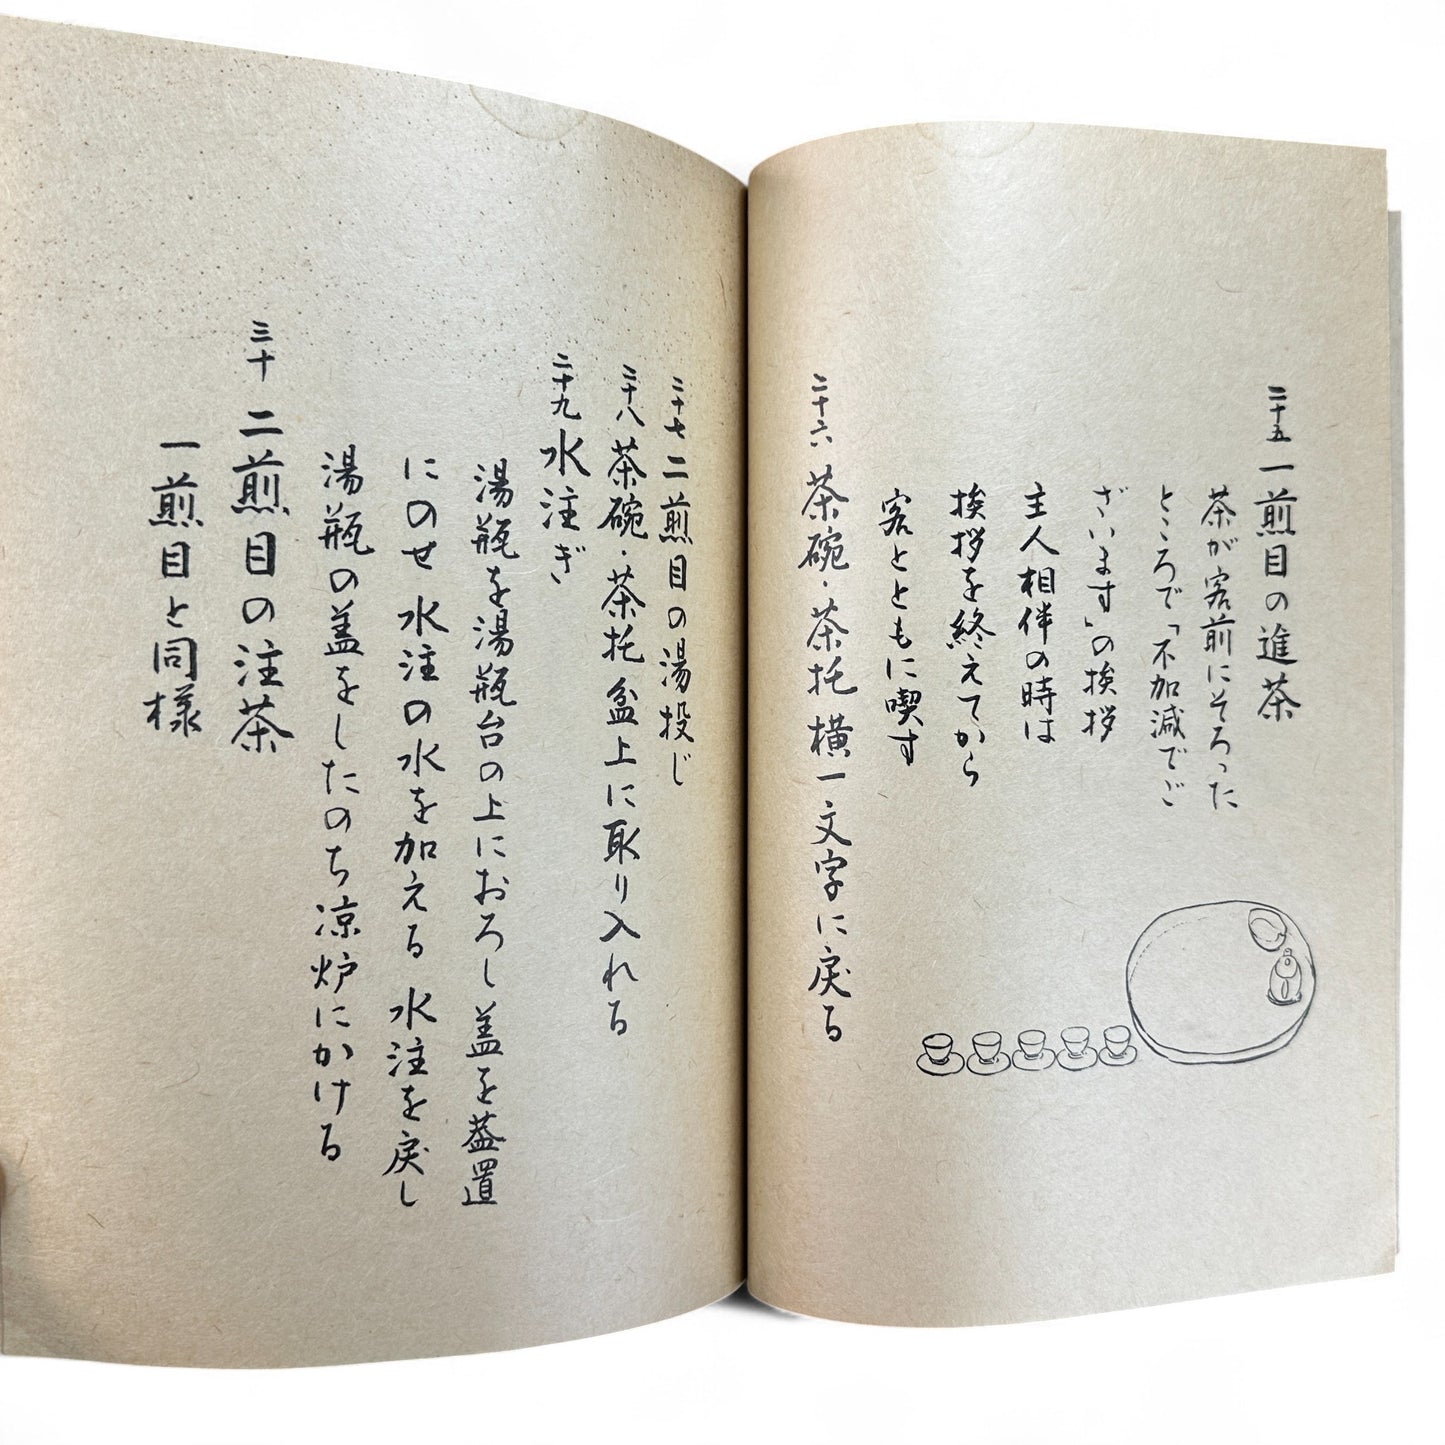 二十五 一煎目の進茶
茶が客前にそろった
ところで「不加減でご
ざいます」の挨拶
主人相伴の時は
挨拶を終えてから
客とともに喫す
二十六 茶碗・茶托 横一文字に戻る
二十七 二煎目の湯投じ
二十八 茶碗・茶托 盆上に取り入れる
二十九 水注ぎ
湯瓶を湯瓶台の上におろし蓋を蓋置
にのせ 水注の水を加える 水注を戻し
湯瓶の蓋をしたのち涼炉にかける
三十 二煎目の注茶
一煎目と同様